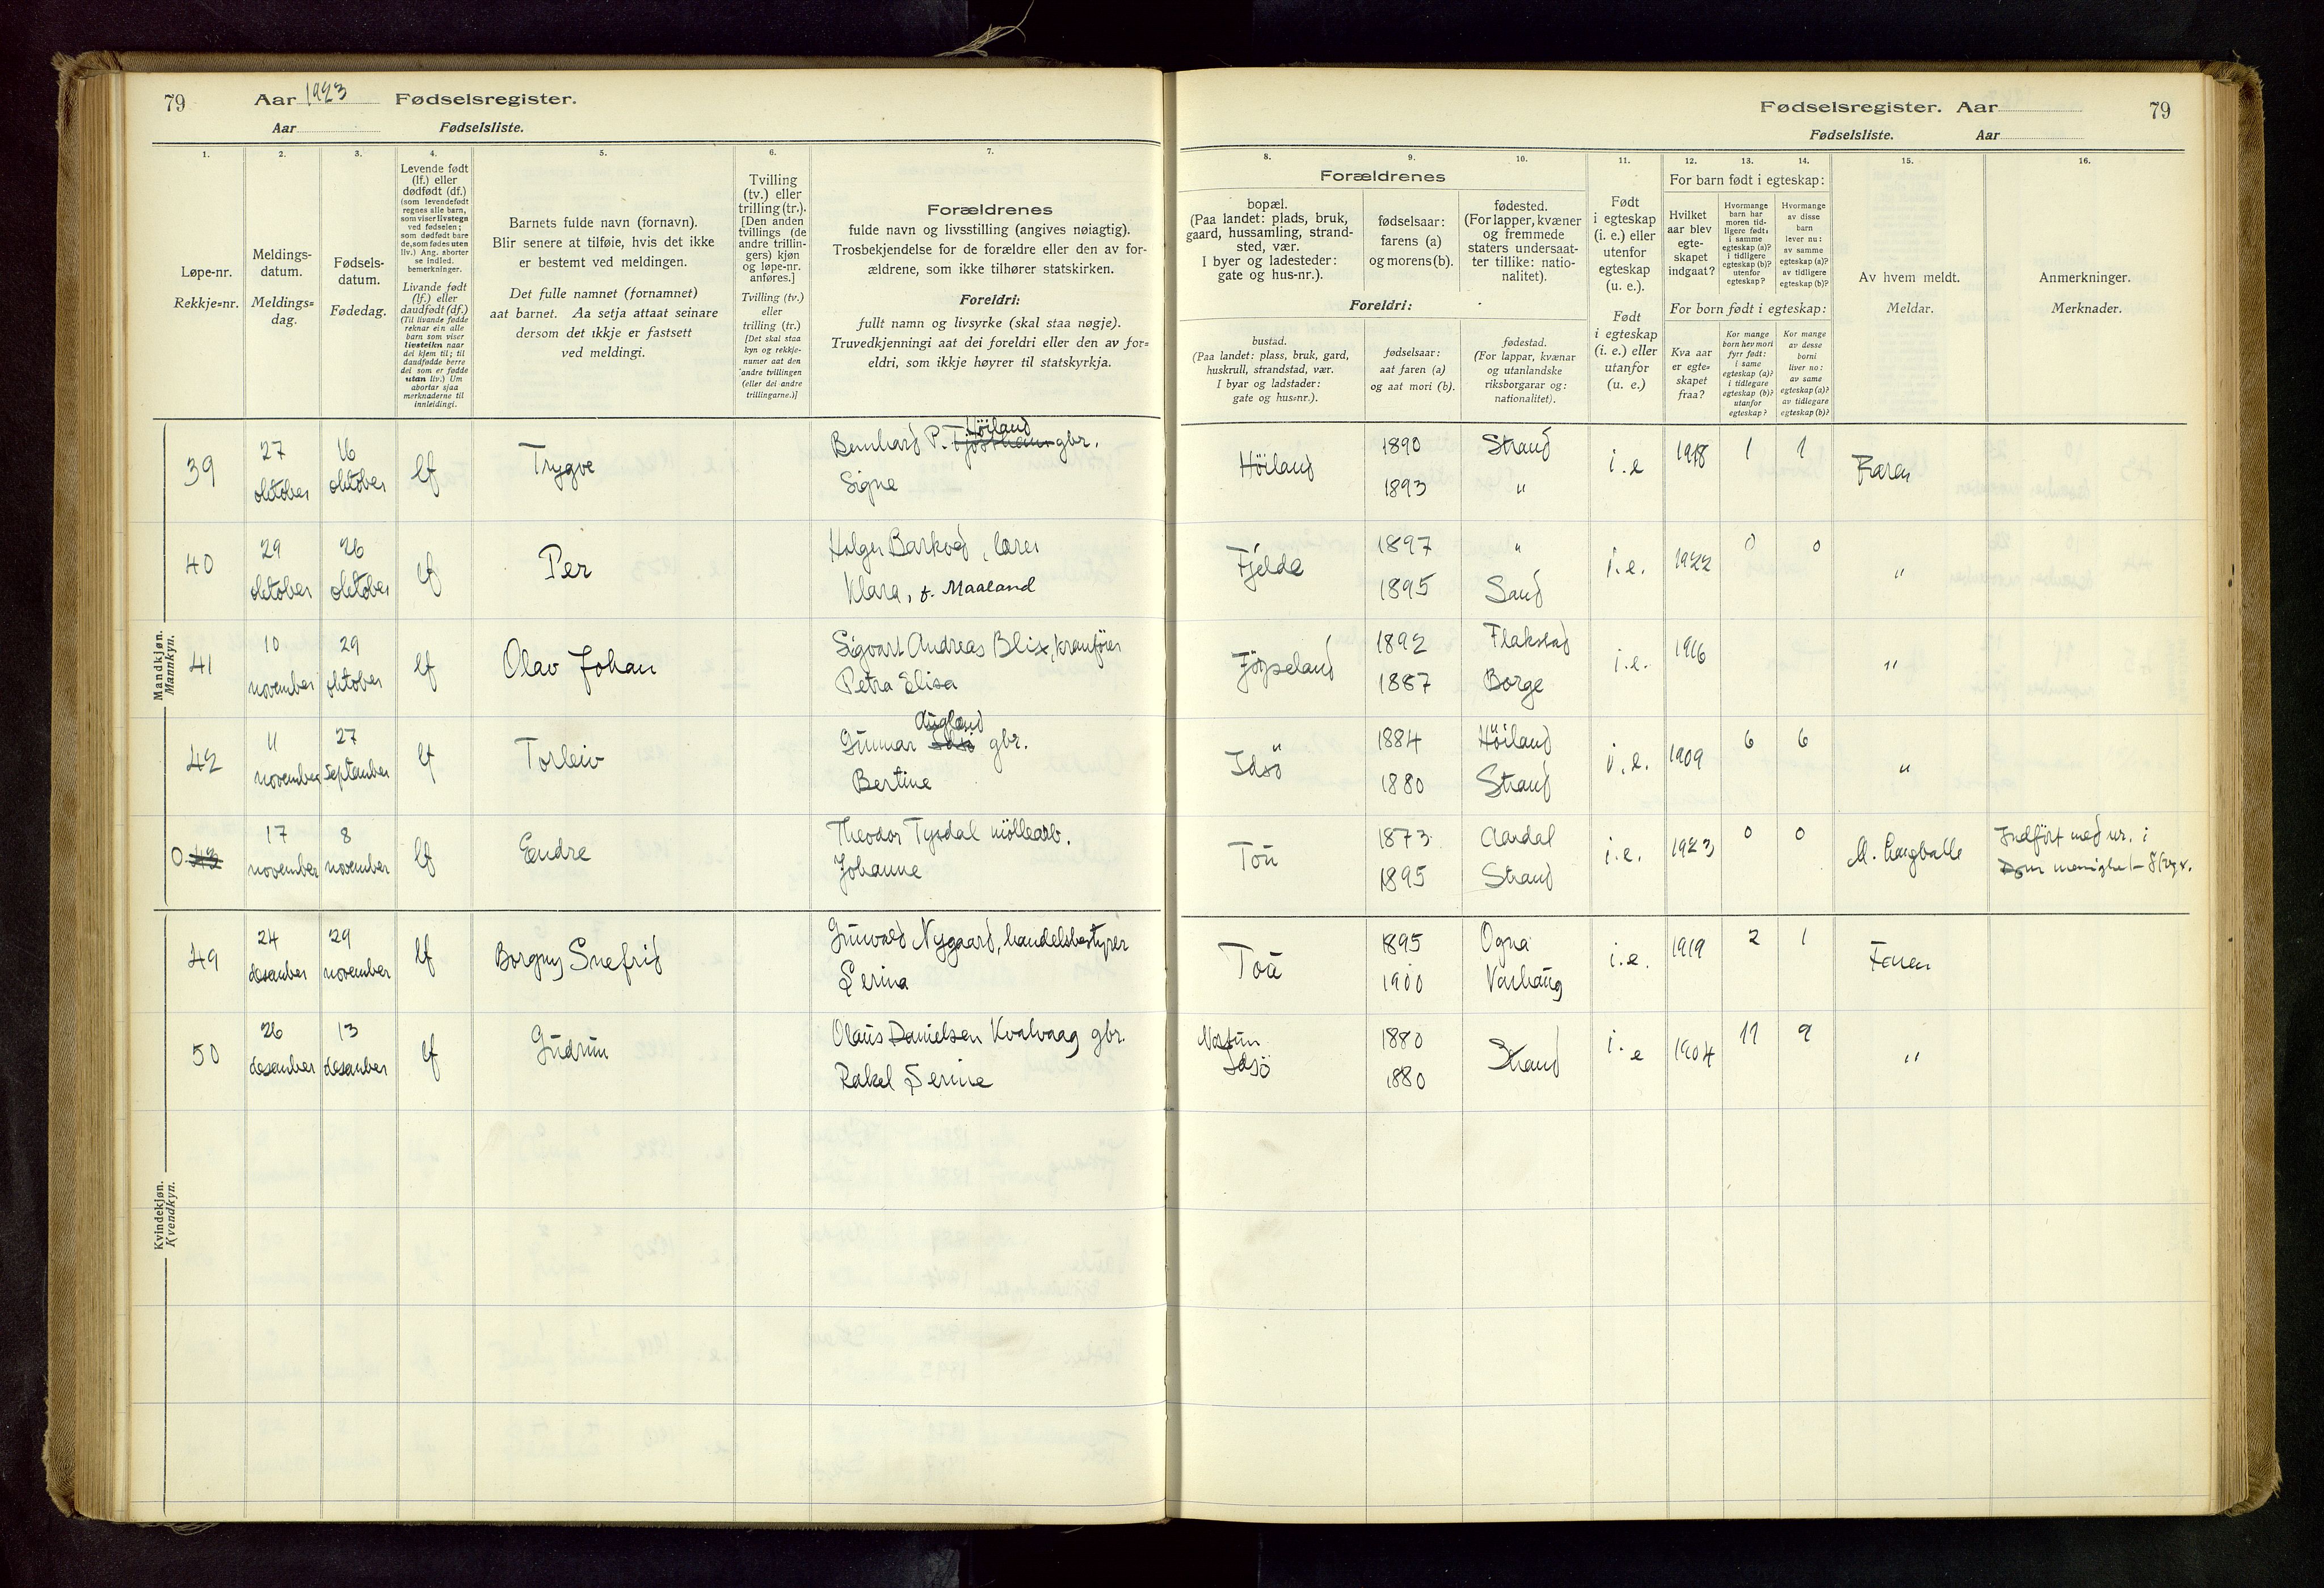 79 Aar 1923 Fødselsregister.
Aar Fødselsliste.
Fødselsregister. Aar 79
Fødselsliste. Aar
1. 2. 3. 4. 5. 6. 7. 8. 9. 10. 11. 12. 13. 14. 15. 16.
Løpe-nr.
Rekkje=nr.
Meldings-
datum.
Meldings=
dag.
Fødsels-
datum.
Fødedag.
Levende født
(lf.) eller
dødfødt (df.)
(som levendefødt
regnes alle barn,
som viser livstegn
ved fødselen;
som dødfødt bare
de, som fødes uten
liv.) Ang. aborter
se indled.
bemerkninger.
Livande født
(lf.) eller
daudfødt (df.)
(Til livande fødde
reknar ein alle
barn som viser
livsteikn naar
dei kjem til; til
daudfødde berre
dei som er fødde
utan liv.) Um
abortar sjaa
merknaderne til
innleidingi.
Barnets fulde navn (fornavn).
Blir senere at tilføie, hvis det ikke
er bestemt ved meldingen.
Det fulle namnet (fornamnet)
aat barnet. Aa setja attaat seinare
dersom det ikkje er fastsett
ved meldingi.
Tvilling
(tv.) eller
trilling (tr.).
[Den anden
tvillings (de
andre trillin-
gers) kjøn
og løpe-nr.
anføres.]
Tvilling (tv.)
eller
trilling (tr.)
[Det skal staa
kyn og rekkje-
numer aat den
andre tvillingen
(eller dei andre
trillingarne.)]
Forældrenes
fulde navn og livsstilling (angives nøiagtig).
Trosbekjendelse for de forældre eller den av for-
ældrene, som ikke tilhører statskirken.
Foreldri:
fullt namn og livsyrke (skal staa nøgje).
Truvedkjenningi aat dei foreldri eller den av for=
eldri, som ikkje høyrer til statskyrkja.
Forældrenes
bopæl.
(Paa landet: plads, bruk,
gaard, hussamling, strand-
sted, vær.
I byer og ladesteder:
gate og hus-nr.).
fødselsaar:
farens (a)
og morens (b).
fødested.
(For lapper, kvæner
og fremmede
staters undersaat-
ter tillike: natio-
nalitet).
Foreldri:
bustad.
(Paa landet: plass, bruk, gard,
huskrull, strandstad, vær.
I byar og ladstader:
gate og hus=nr.).
fødselsaar:
aat faren (a)
og aat mori (b).
fødestad.
(For lappar, kvænar
og utanlandske
riksborgarar og:
nationalitet).
Født
i egteskap
(i. e.) eller
utenfor
egteskap
(u. e.).
Født
i egteskap
(i. e.) eller
utanfor
(u. e.)
For barn født i egteskap:
Hvilket
aar blev
egte-
skapet
indgaat?
Hvormange
barn har
moren tid-
ligere født:
i samme
egteskap (a)?
i tidligere
egteskap (b)?
utenfor
egteskap?
Hvormange
av disse
barn
lever nu:
av samme
egteskap (a)?
av tidligere
egteskap (b)?
For born født i egteskap:
Kva aar
er egte=
skapet
fraa?
Kor mange
born hev mori
fyrr født:
i same
egteskap (a)?
i tidlegare
egteskap (b)?
utanfor
egteskap?
Kor mange
av desse
borni
liver no:
av same
egteskap (a)?
av tidlegare
egteskap (b)?
Av hvem meldt.
Meldar.
Anmerkninger.
Merknader.
Mandkjøn.
Mannkyn.
39 27 oktober 16 oktober lf Trygve Bernhard P. Höiland gbr. Höiland 1890 Strand i.e 1918 1 1 Faren
Signe 1893 "
40 29 oktober 26 oktober lf Per Holger Barkved, lærer Fjelde 1897 " i.e. 1922 0 0 "
Klara, f. Maaland 1895 Sand
41 10 november 29 oktober lf Olav Johan Sigvart Andreas Blix, kranförer Jörpeland 1892 Flakstad i.e. 1916 "
Petra Elisa 1887 Borge
42 11 november 27 september lf Torleiv Gunnar Augland gbr. Idsö 1884 Höiland i.e. 1909 6 6 "
Bertine 1880 Strand
0. 43 17 november 8 november lf Endre Theodor Tysdal möllearb. Tou 1873 Aardal i.e. 1923 0 0 Indfört med nr. i
Johanne 1895 Strand Dom menighet
Kvindekjøn.
Kvendkyn.
49 24 desember 29 november lf Borgny Snefrid Grunvald Nygaard, handelsbestyrer Tou 1895 Ogna i.e. 1919 2 1 Faren
Serina 1900 Varhaug
50 26 desember 13 desember lf Gudrun Olaus Danielsen Kvalvaag gbr. Idsö 1880 Strand i.e 1904 11 9 "
Rakel Serine 1880